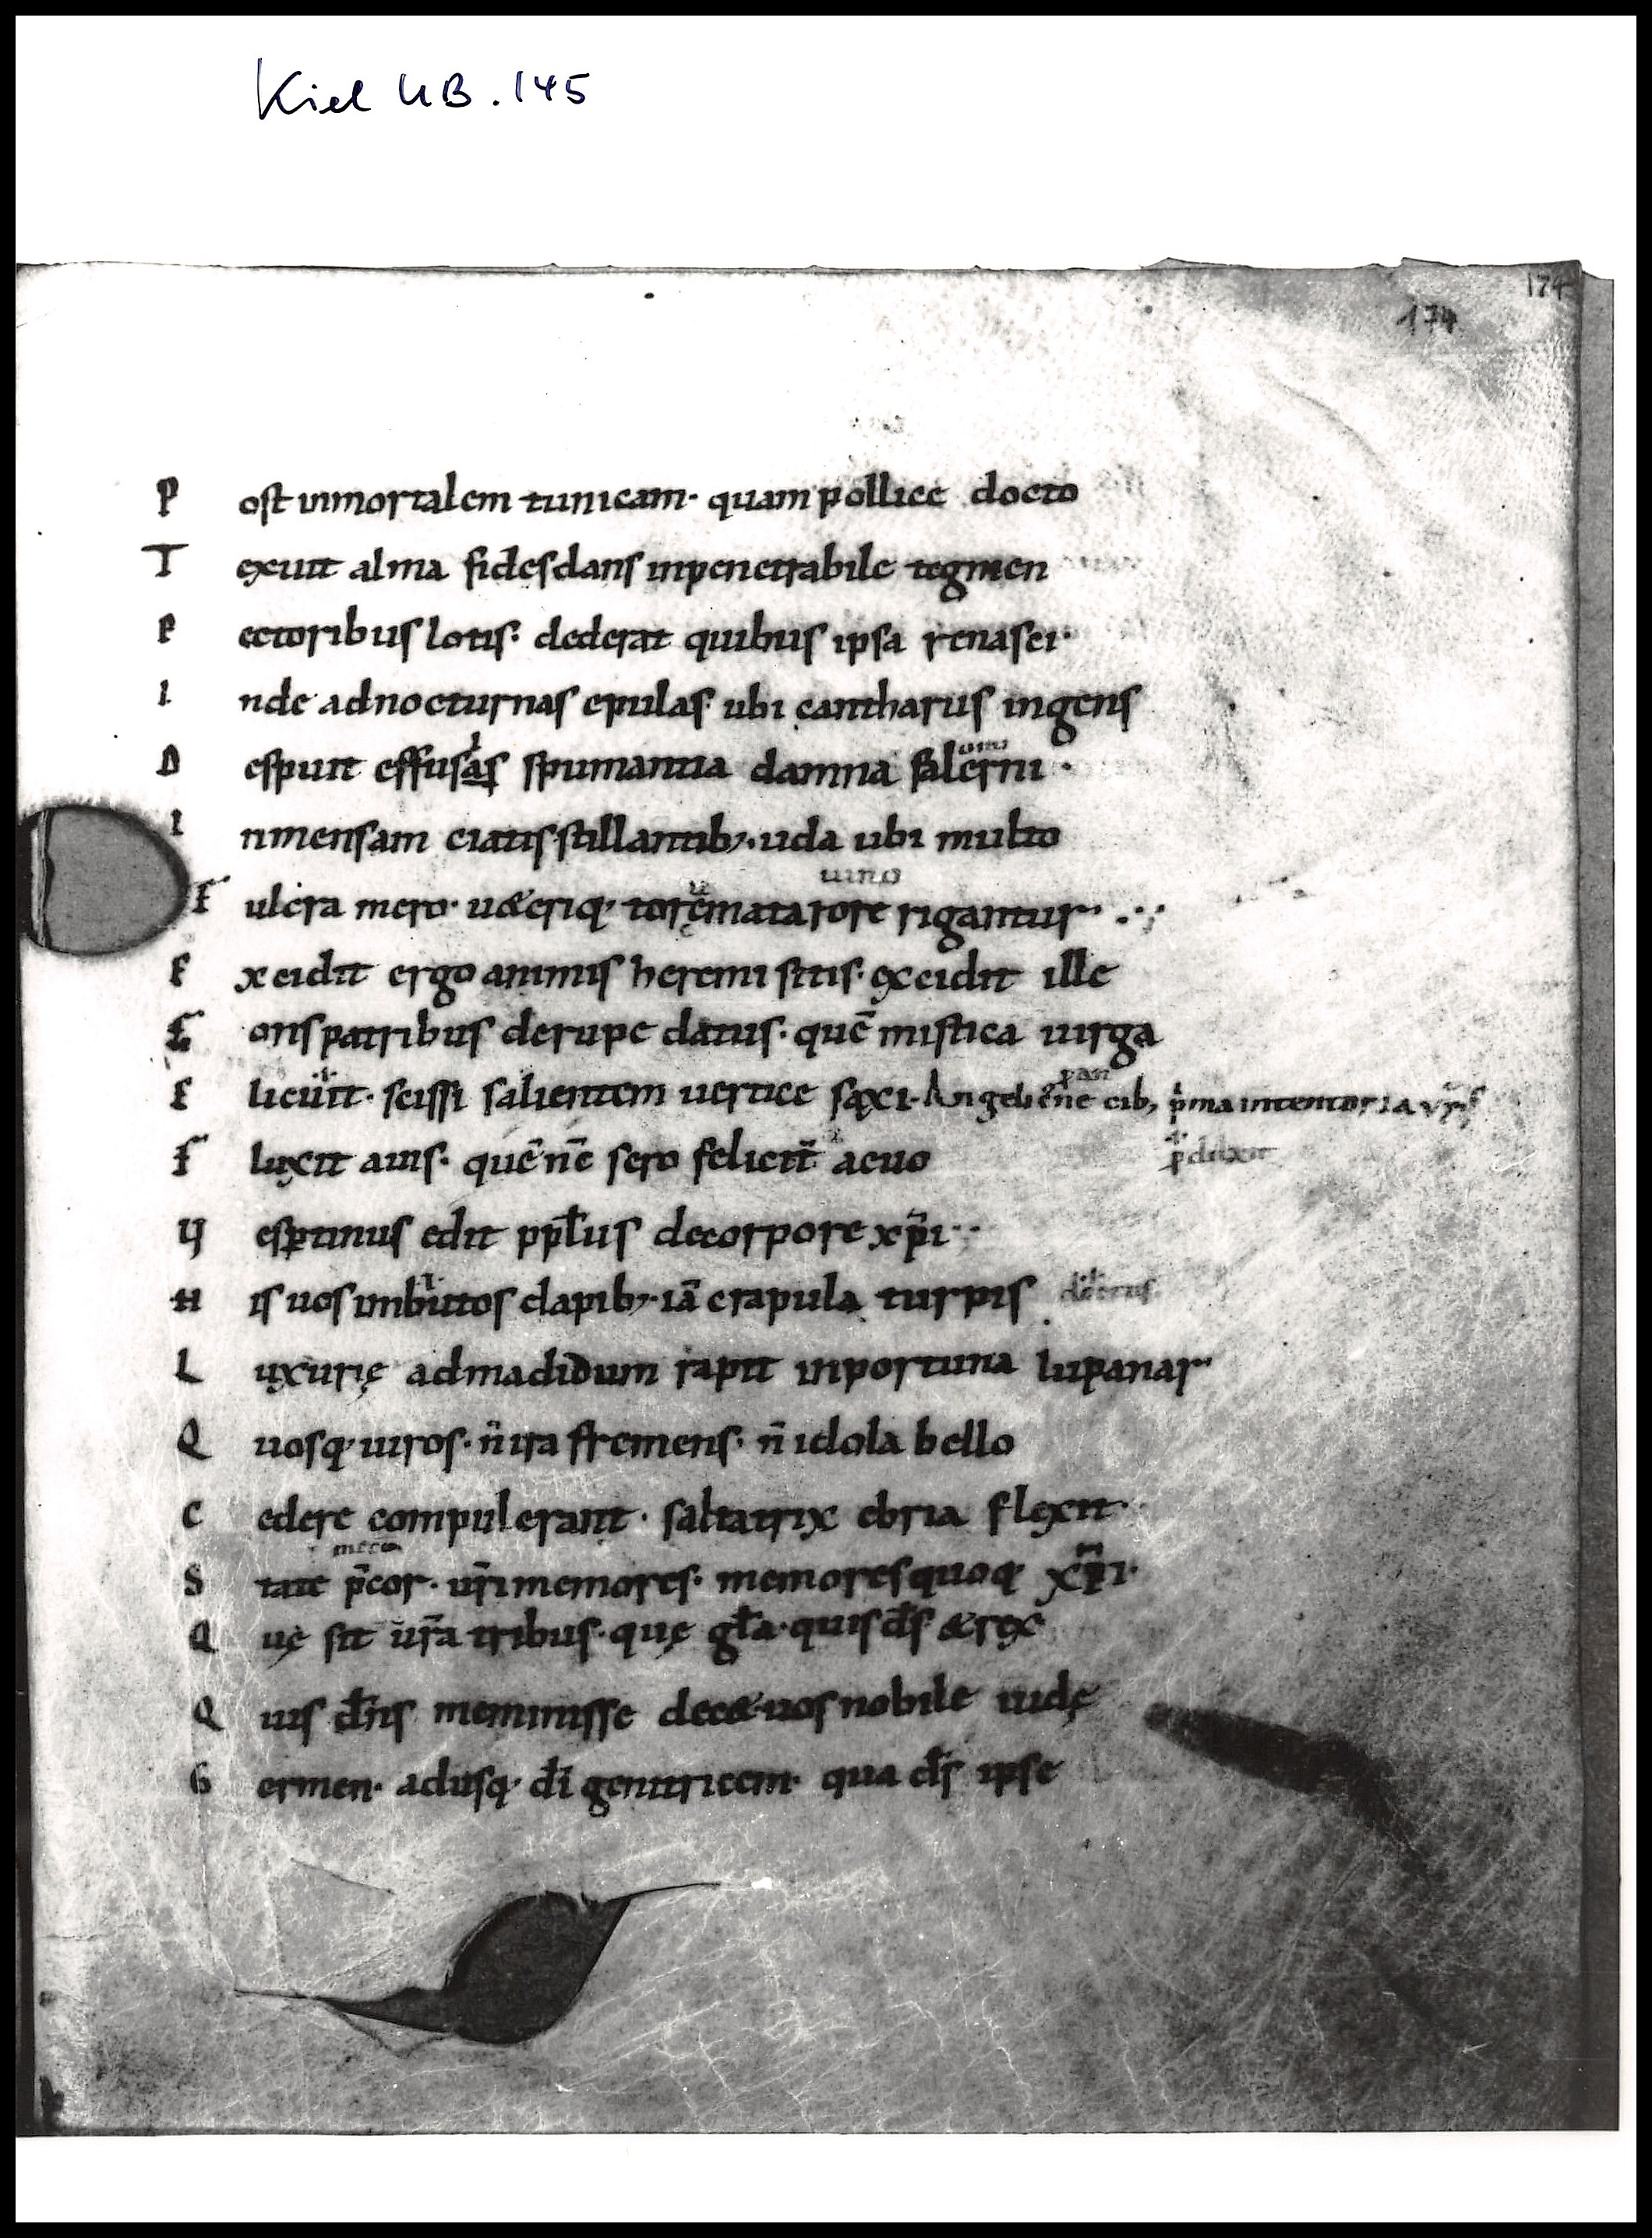 Kiel UB. 145
174
174
P ost inmortalem tunicam· quam pollice docto
T exuit alma fides dans inpenetrabile tegmen
P ectoribus lotis· dederat quibus ipsa renasci·
I nde ad nocturnas epulas· ubi cantharus ingens
D espuit effusas spumantia damna falerni·
I nmensam ciatis stillantib;· uda ubi multo
uino
F ulcra mero· ueteriq· toreumata rore rigantur·
E xcidit ergo animis heremi sitis· excidit ille
F ons patribus de rupe datus· quē mistica uirga
pan
E licuit· scissi salientem uertice saxi· Angelicꝰne cib; p̍ma in tentoria vr̄is
F luxit auis· quē n̄c sero felicit̄ aeuo
U esptinus edit ppl̄us de corpore xp̄i·
H is uos imbutos dapib;· iā crapula turpis
L uxurię ad madidum rapit inportuna lupanar
Q uosq· uiros· n̄ ira fremens· n̄ idola bello
C edere compulerant· saltatrix ebria flexit·
S tate p̄cor· ur̄i memores· memores quoq· xp̄i·
Q uę sit ur̄a tribus· quę gl̄a· quis d̄s & rex
Q uis dn̄s meminisse dec&· uos nobile iudę
G ermen· adusq· dī genitricem· qua d̄s ipse